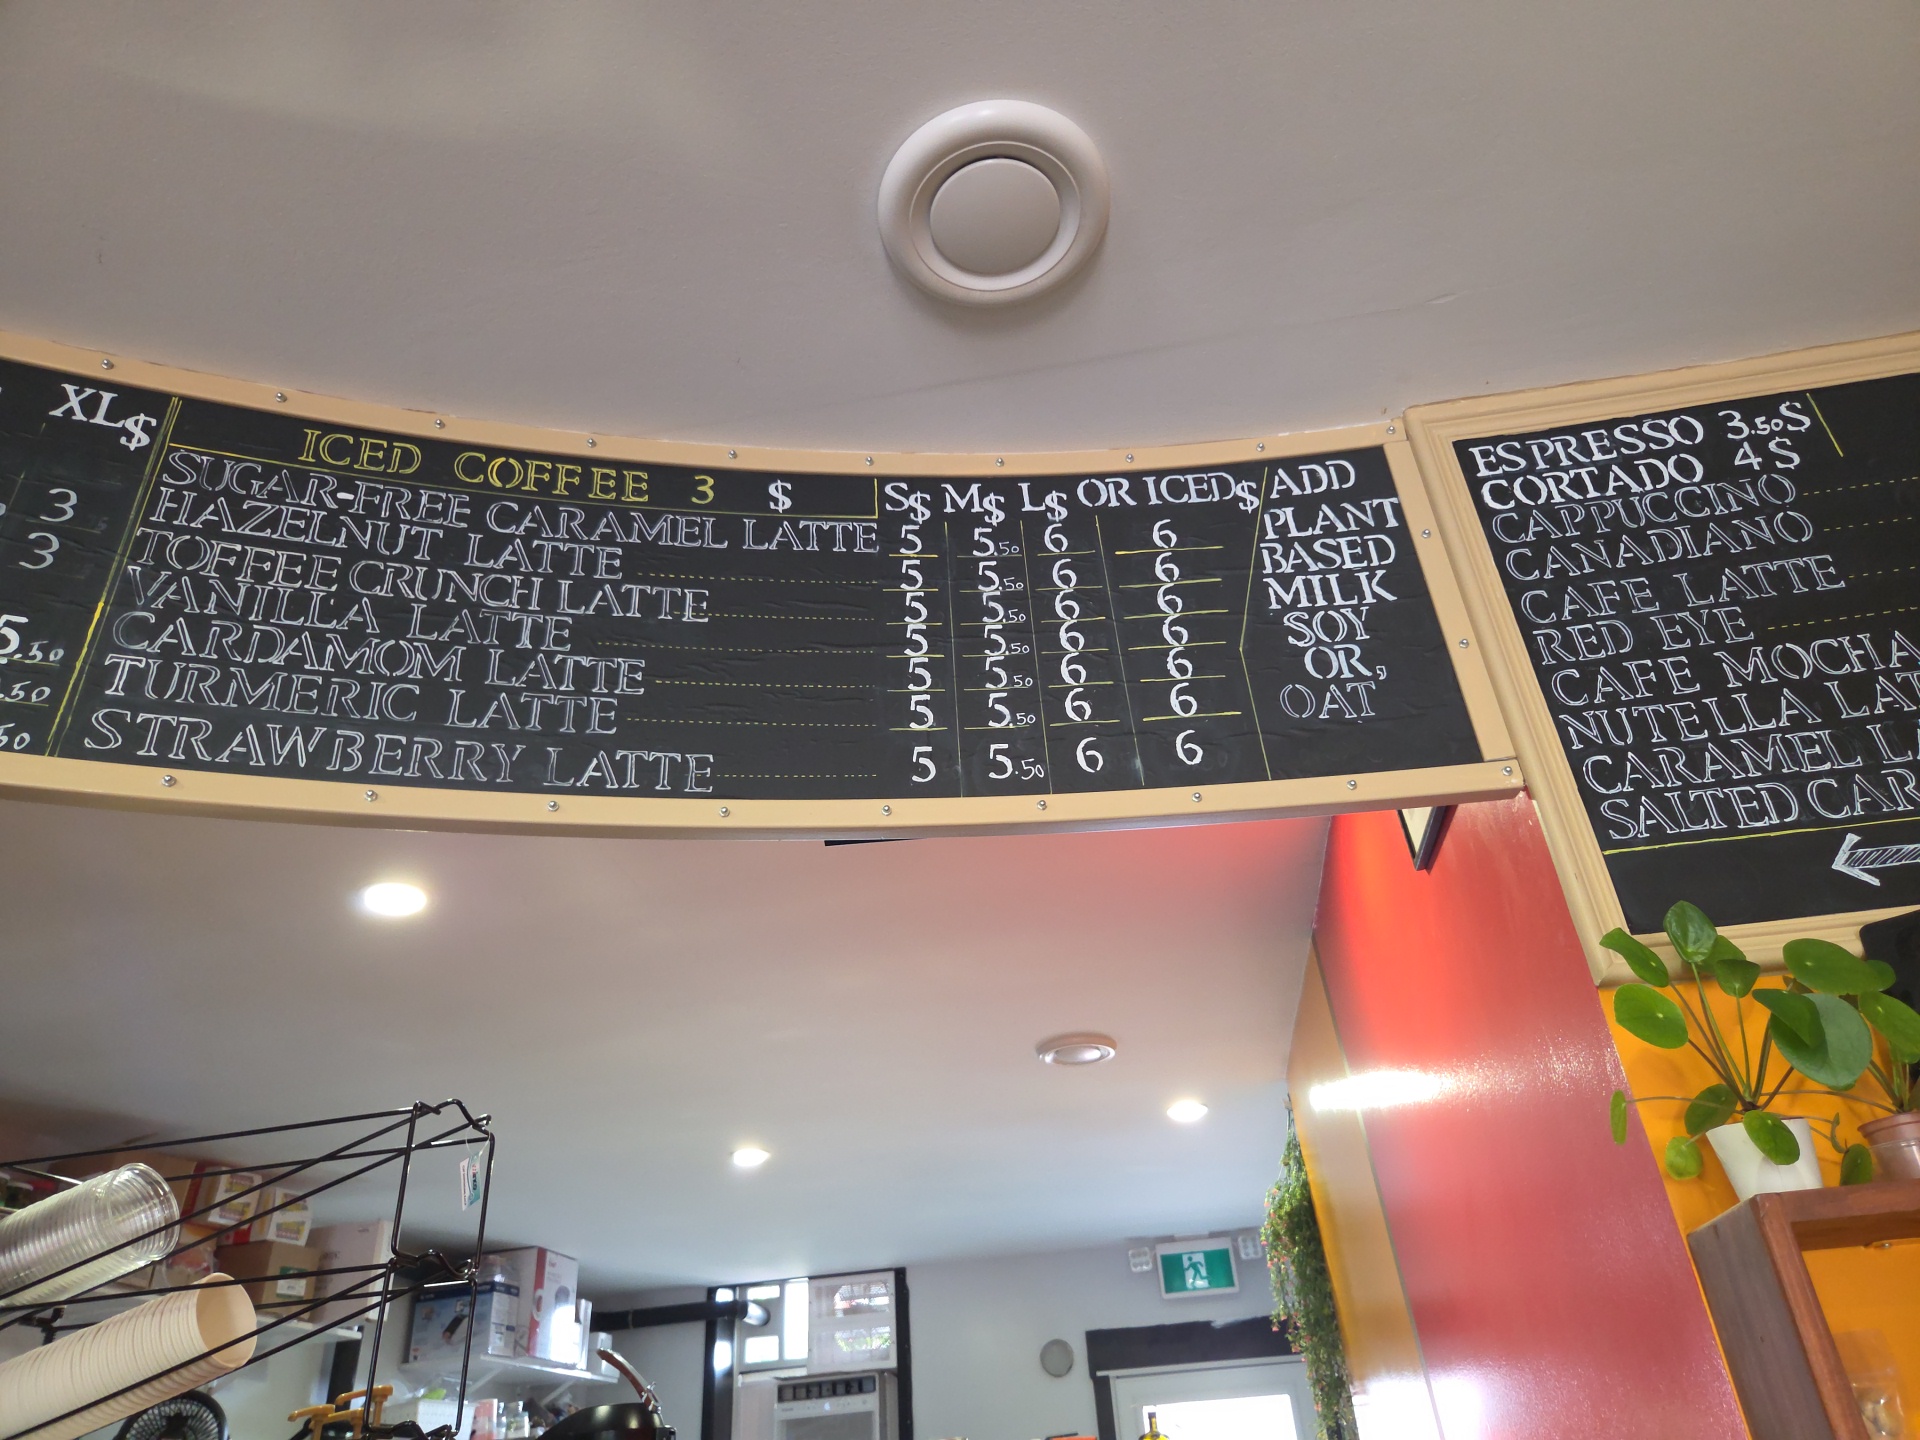 XL$
3
3
5.50
.50
50
ICED COFFEE 3 $
S$ M$ L$ OR ICED$
SUGAR-FREE CARAMEL LATTE 5 5.50 6 6
HAZELNUT LATTE 5 5.50 6 6
TOFFEE CRUNCH LATTE 5 5.50 6 6
VANILLA LATTE 5 5.50 6 6
CARDAMOM LATTE 5 5.50 6 6
TURMERIC LATTE 5 5.50 6 6
STRAWBERRY LATTE 5 5.50 6 6
ADD
PLANT
BASED
MILK
SOY
OR,
OAT
ESPRESSO 3.50$
CORTADO 4$
CAPPUCCINO
CANADIANO
CAFE LATTE
RED EYE
CAFE MOCHA
NUTELLA LAT
CARAMEL LA
SALTED CAR